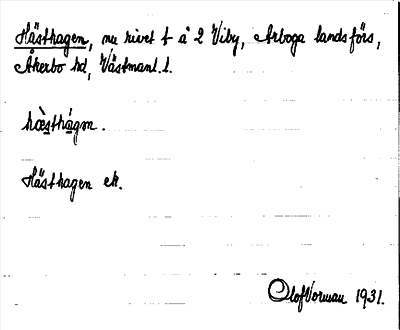 Hästhagen, nu rivet t å 2 Viby, Arboga landsförs,
Åkerbo hd, Västmanl. l.
hæ̀sthágɘn.
Hästhagen ek.
Olof Vorman 1931.